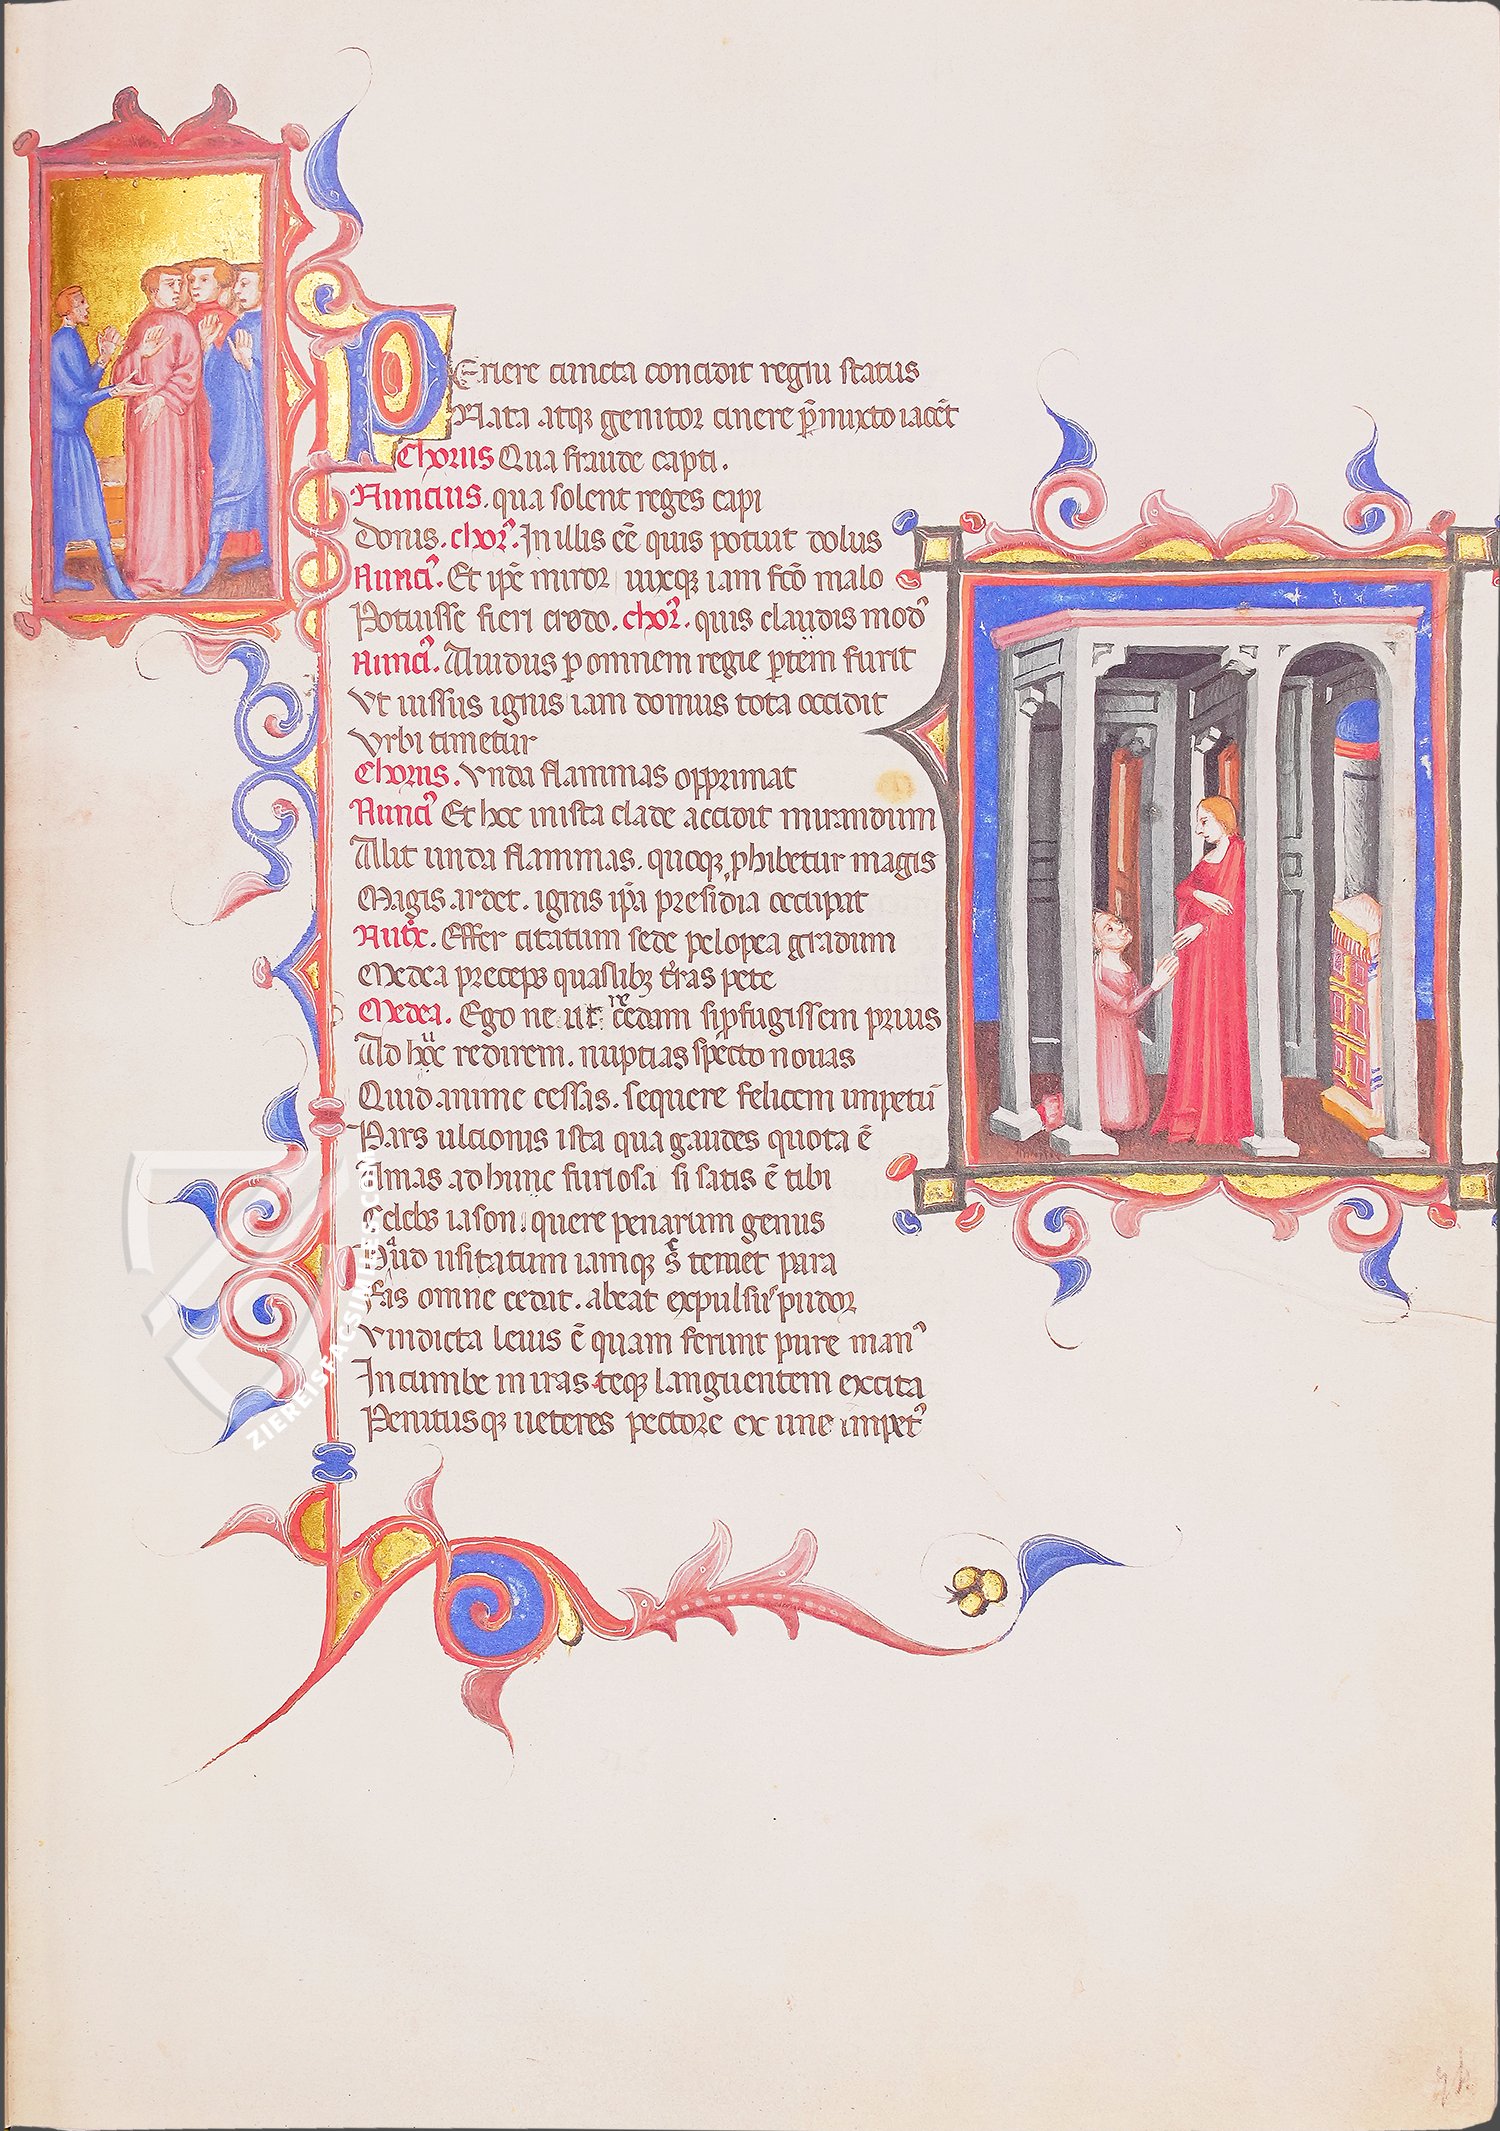 PEriere cuncta concidit regni status
Nata atqȝ genitor cinere p̄mixto iacēt
Chorus Qua fraude capti.
Nuncius. qua solent reges capi
Donis. choꝛ᾽. In illis eē quis potuit dolus
Nunci᾽. Et ip̄e miror uixqȝ iam fc̄o malo
Potuisse fieri credo. choꝛ᾽. quis cladis mod᾽
Nunci᾽. Auidus p omnem regie ptem furit
Vt iussus ignis iam domus tota occidit
Vrbi timetur
Chorus. Vnda flammas opprimat
Nunci᾽ Et hoc in ista clade accidit mirandum
Alit unda flammas. quoqȝ phibetur magis
Magis ardet. ignis ip̄a presidia occupat
Nutx. Effer citatum sede pelopea gradum
Medea preceps quaslibȝ t̄ras pete
Medea. Ego ne ut recedam si pfugissem prius
Ad hoc redirem. nuptias specto nouas
Quid anime cessas. sequere felicem impetū
Pars ulcionis ista qua gaudes quota ē
Amas adhunc furiosa si satis ē tibi
Celebs iason. quere penarum genus
Haud usitatum iamqȝ s̄ temet para
Fas omne cedat. abeat expulsus pudoꝛ
Vindicta leuis ē quam ferunt pure man᾽
Incumbe in iras teqȝ languentem excita
Penitusqȝ ueteres pectore ex une impet᾽
ZIEREISFACSIMILES.COM